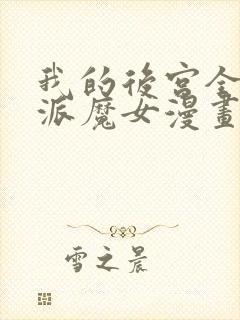 我的後宮全
派魔女漫畫
雪之晨